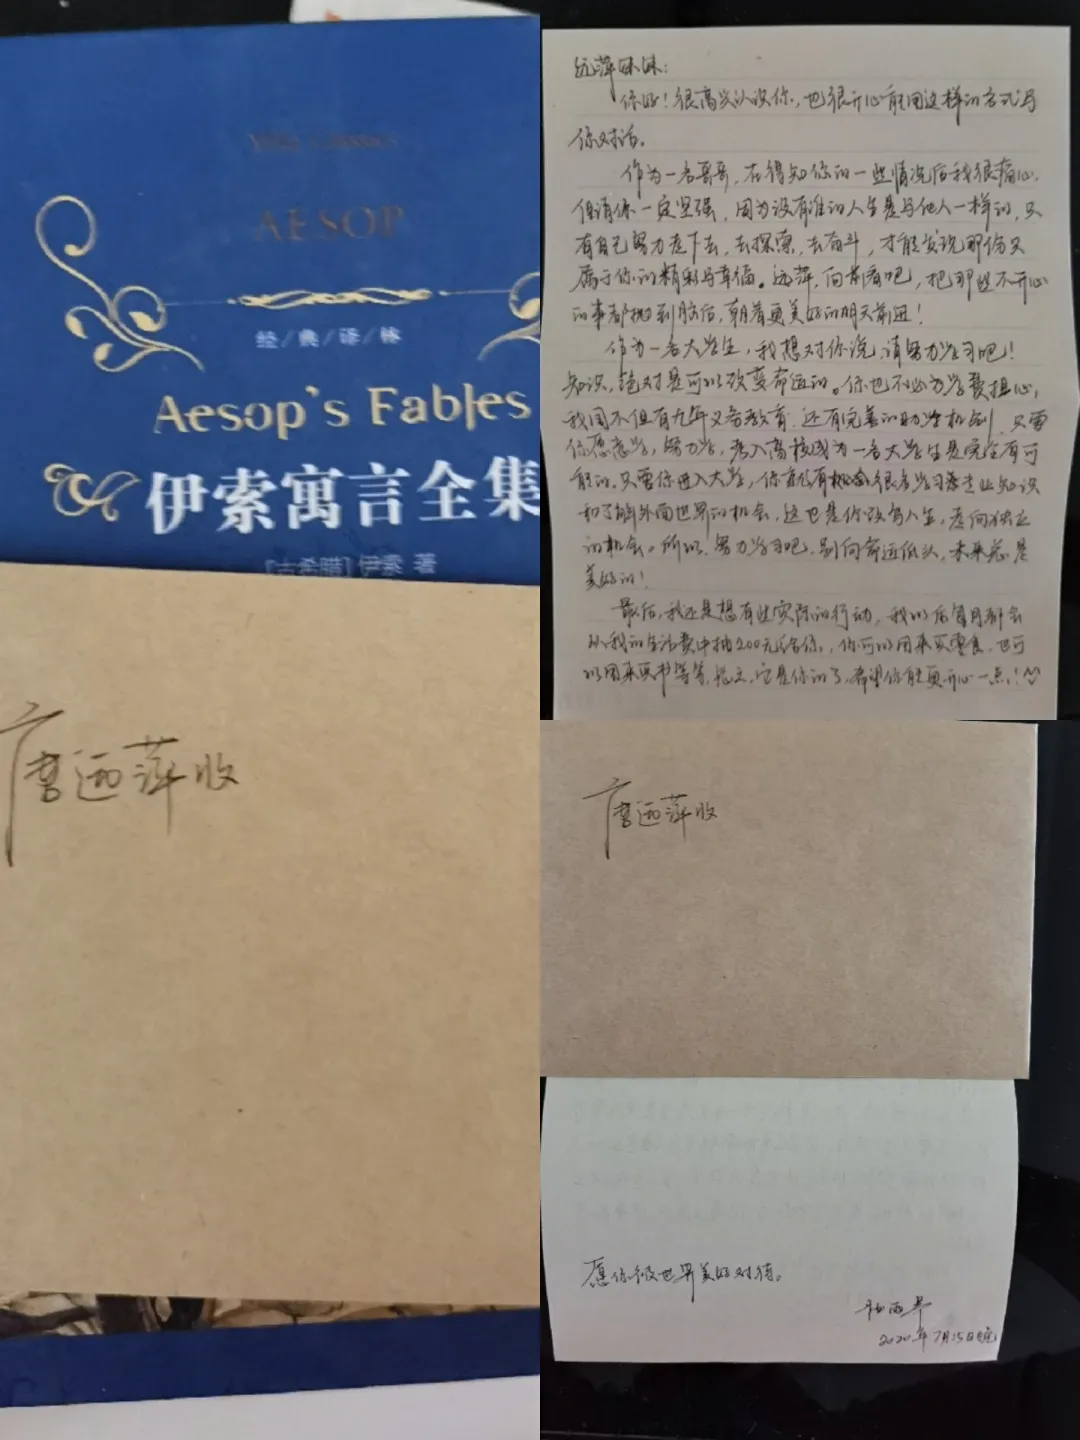 Yilin Classics
AESOP
经/典/译/林
Aesop's Fables
伊索寓言全集
[古希腊] 伊索 著
唐远萍收
远萍妹妹：
你好！很高兴认识你，也很开心能用这样的方式与
你对话。
作为一名哥哥，在得知你的一些情况后我很痛心，
但请你一定坚强，因为没有谁的人生是与他人一样的，只
有自己努力走下去，去探索，去奋斗，才能发现那份只
属于你的精彩与幸福。远萍，向前看吧，把那些不开心
的事都抛到脑后，朝着更美好的明天前进！
作为一名大学生，我想对你说，请努力学习吧！
知识，绝对是可以改变命运的。你也不必为学费担心，
我国不但有九年义务教育，还有完善的助学机制，只要
你愿意学，努力学，考入高校成为一名大学生是完全有可
能的。只要你进入大学，你就有很多学习专业知识
和了解外面世界的机会，这也是你改写人生，走向独立
的机会。所以，努力学习吧，别向命运低头，未来总是
美好的！
最后，我还是想有些实际的行动，我以后每月都会
从我的生活费中抽200元给你，你可以用来买零食，也可
以用来买书等等，总之，它是你的了，希望你能更开心一点！
唐远萍收
愿你被世界美好对待。
2020年7月15日晚